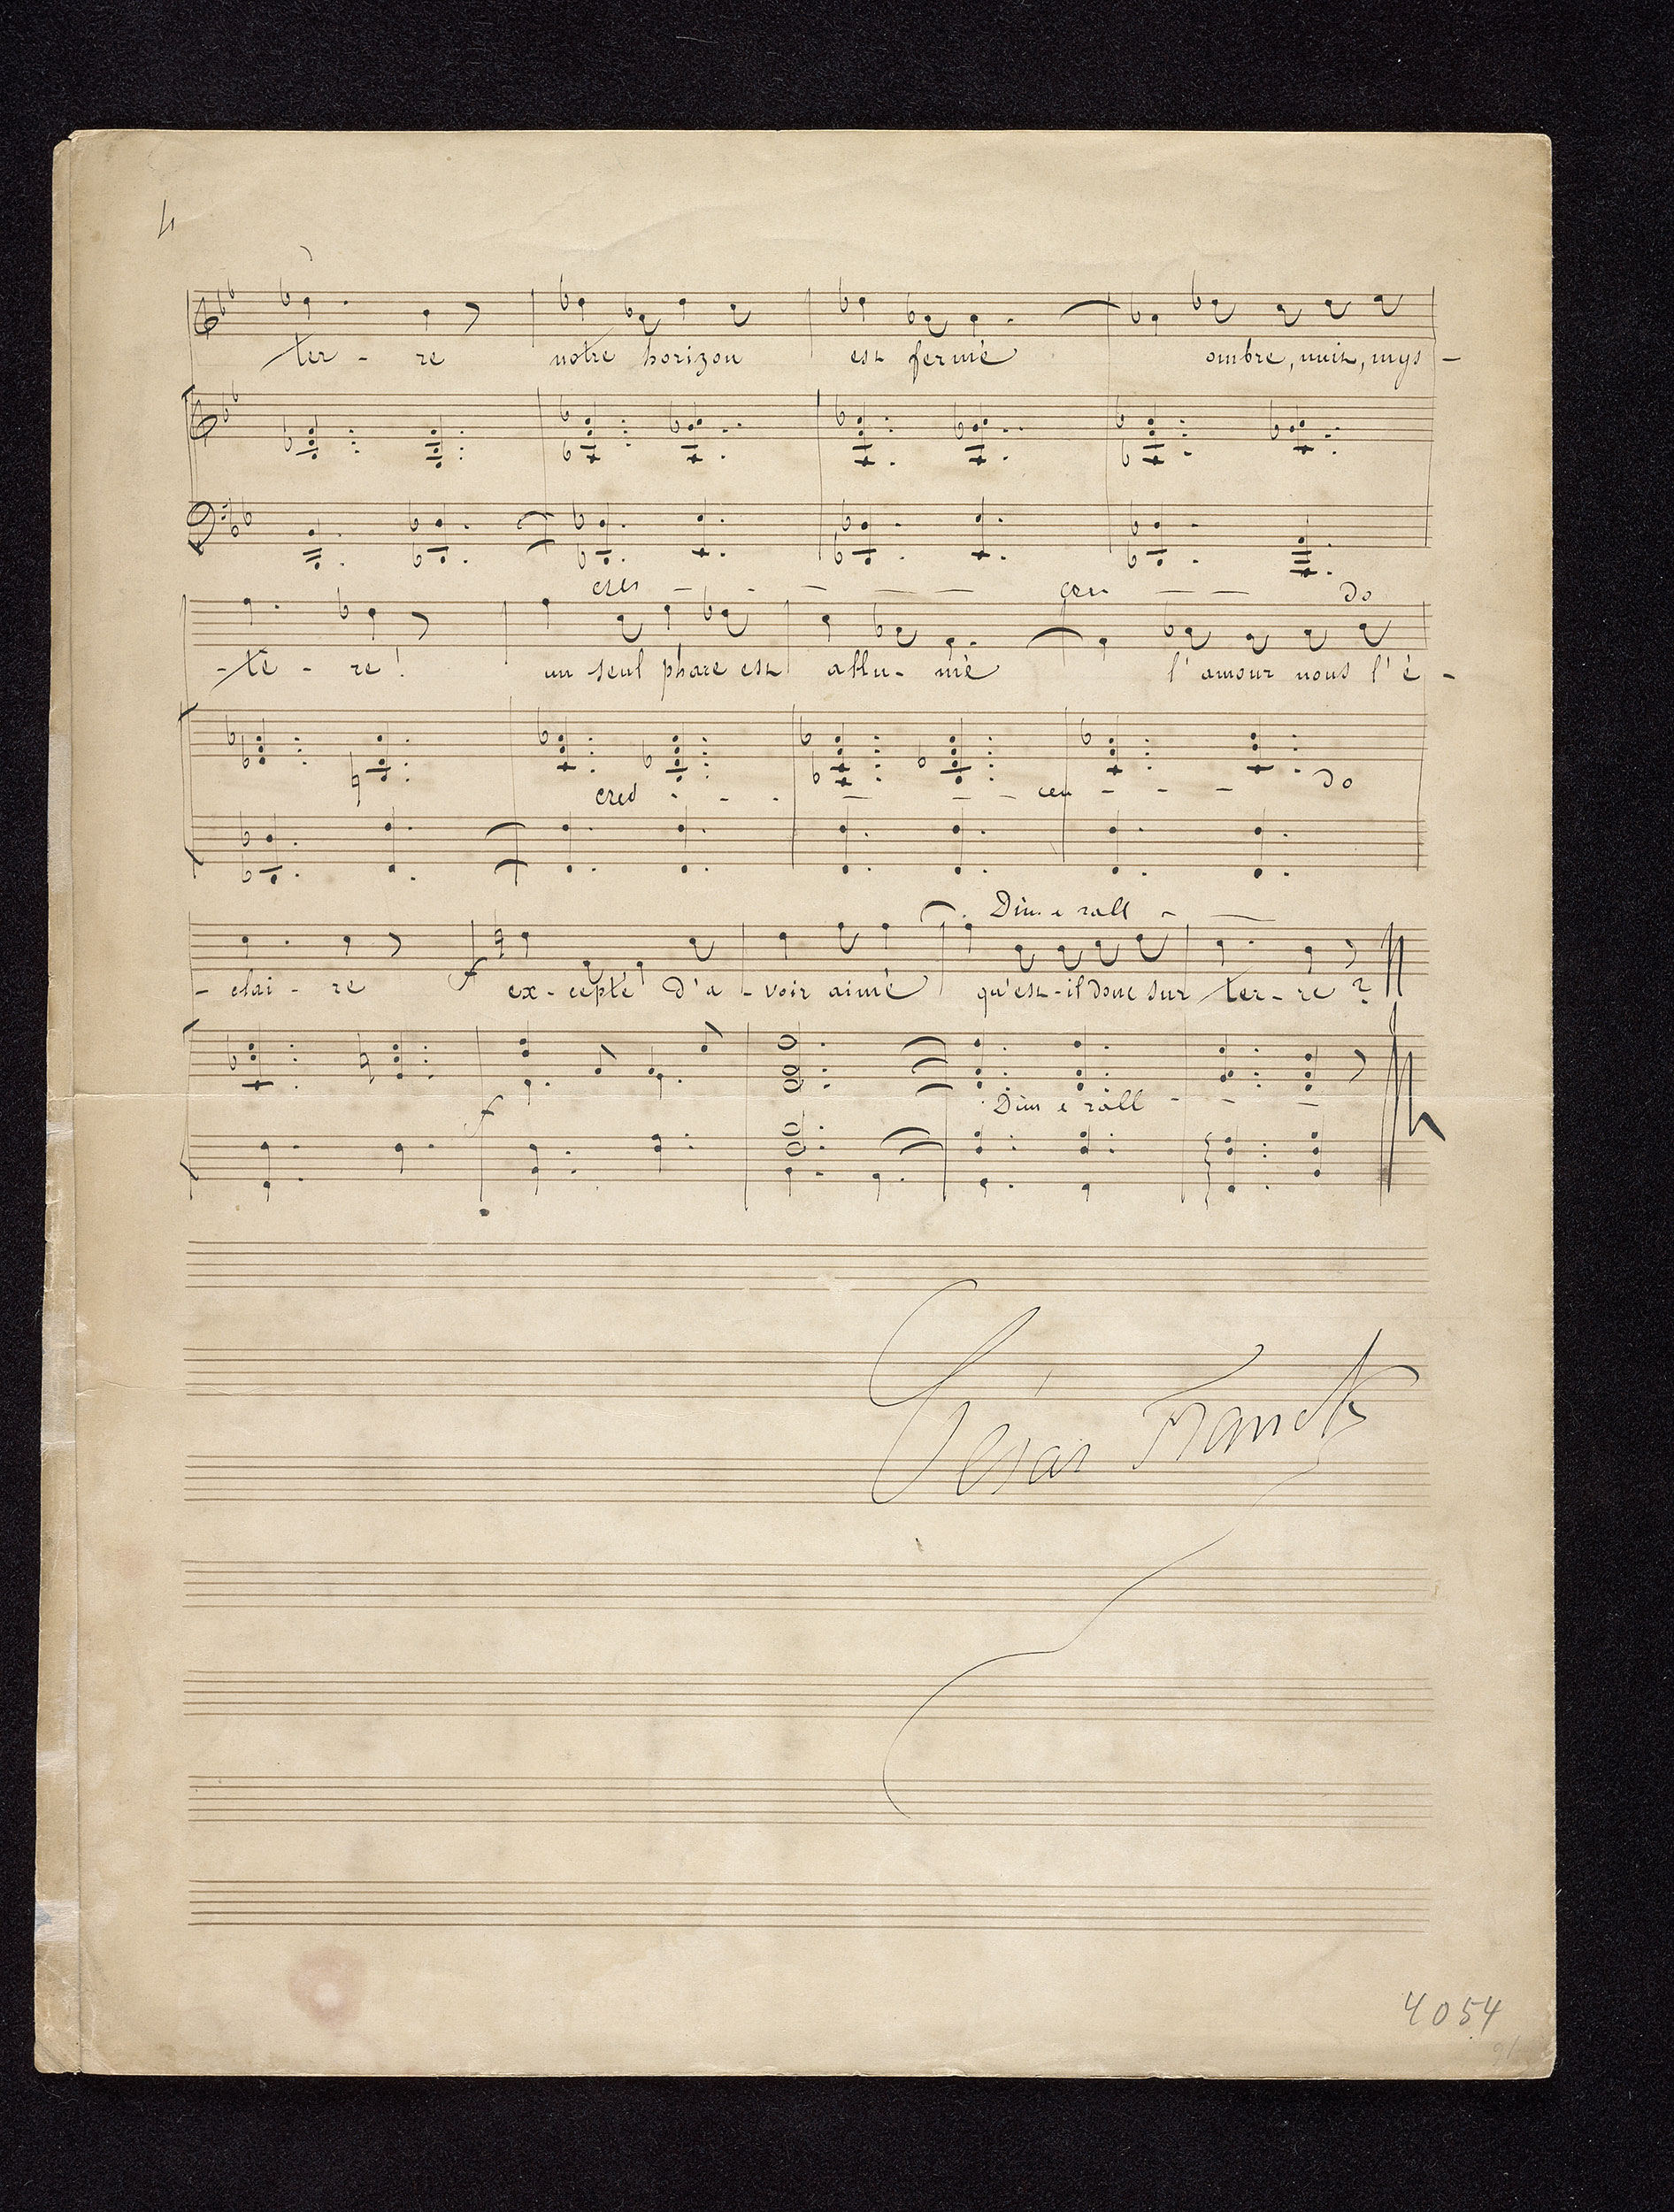 4
ter - re notre horizon est fermé ombre, nuit, mys -
cres - - - - - cen - - do
- tè - re! un seul phare est allu - mé l'amour nous l'é -
cres - - - - - - cen - - - do
Dim. e rall - -
- clai - re f ex - cepté d'a - voir aimé qu'est - il donc sur ter - re ?
f Dim e rall - - -
César Franck
4054